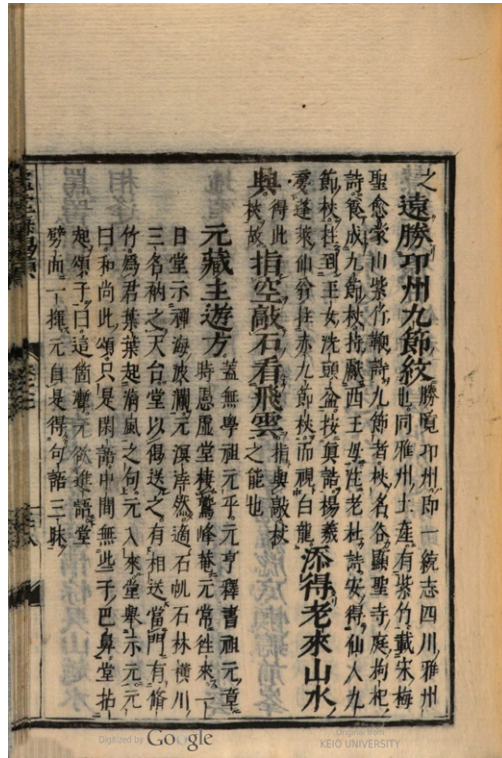 之遠勝卭州九節紋勝覧卭州即一統志四川雅州
也同雅州土産有紫竹載宋梅
聖愈蒙山紫竹鞭詩九節者杖名谷顯聖寺庭枸杞
詩養成九節杖持獻西王母注老杜詩安得仙人九
節杖拄到玉女洗頭盆按真誥楊羲
夢蓬萊仙翁拄赤九節杖而視白龍
添得老來山水
興得此
杖故
指空敲石看飛雲指與敲杖
之能也
元藏主遊方蓋無學祖元乎元亨釋書祖元章
時愚虚堂棲鷲峰菴元常徃來一
日堂示禪海波瀾元渾岸然適石帆石林横川
三名衲之天台堂以偈送之有相送當門有脩
竹爲君葉葉起清風之句元入來堂舉示元元
曰和尚此頌只是閑語中間無些子巴鼻堂拈
起頌子曰這箇元欲進語堂
劈面一揮元自是得句語三昧
Digitized by Google
Original from
KEIO UNIVERSITY